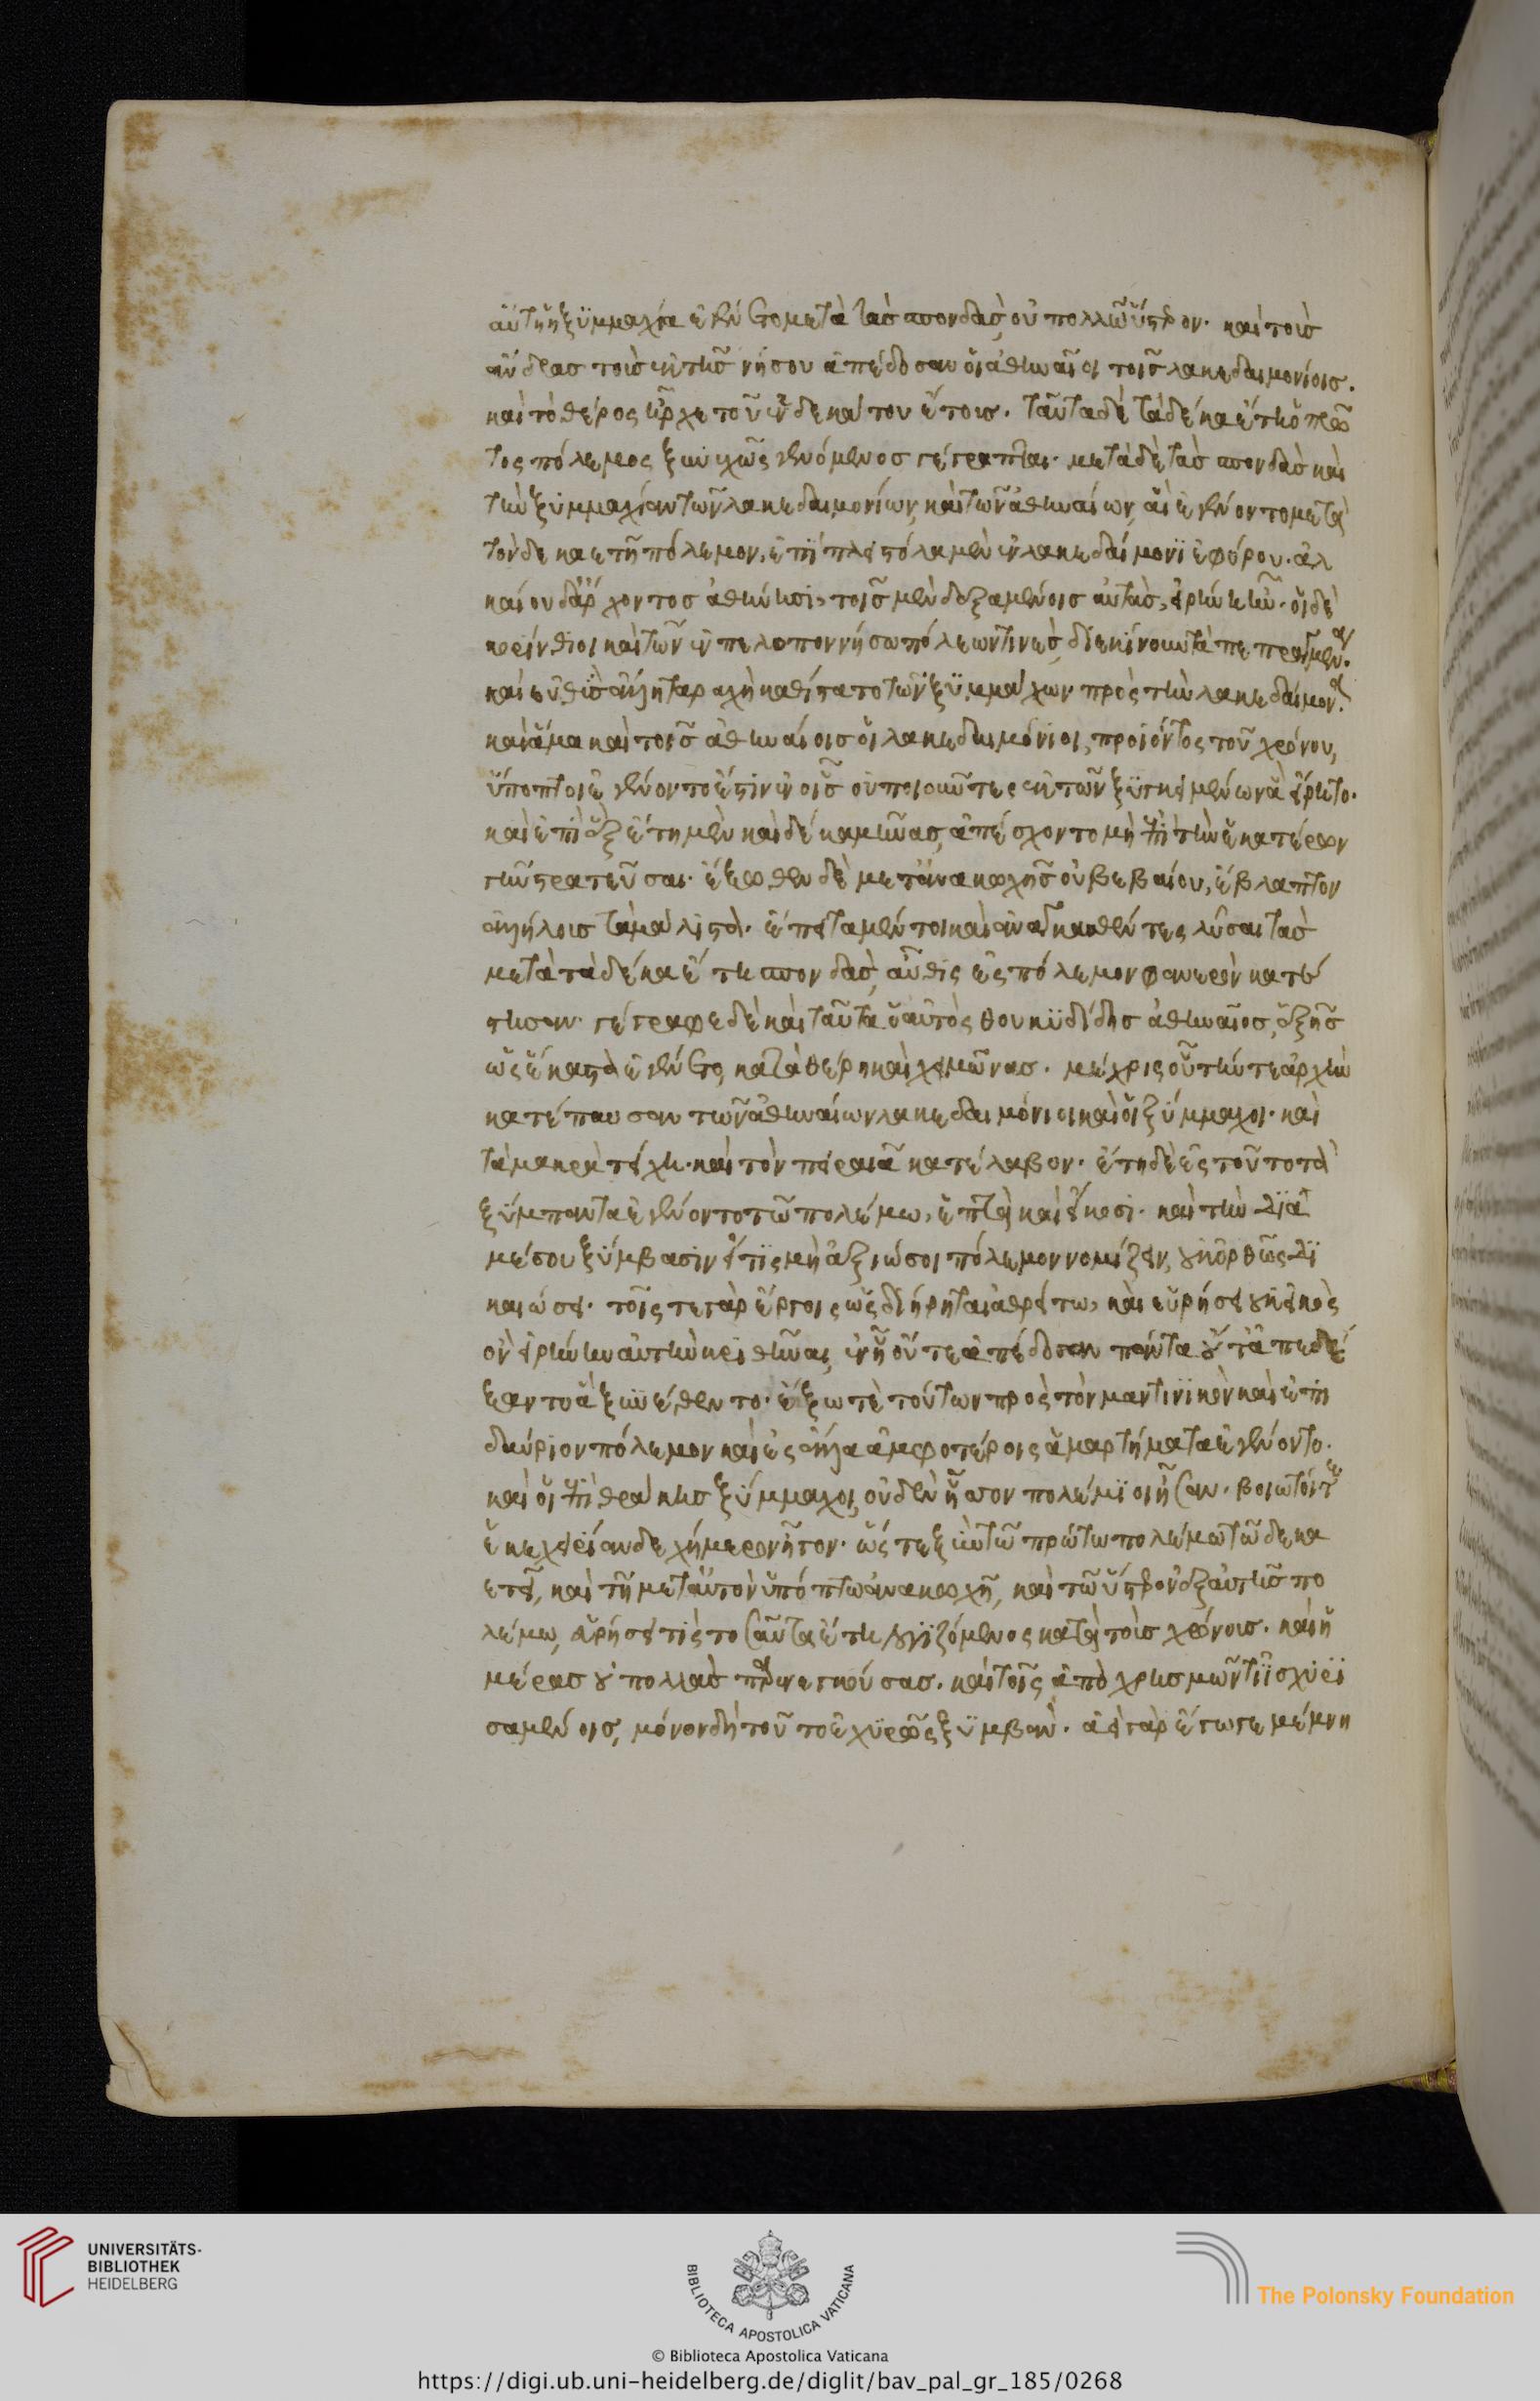 αὕτη ἡ ξυμμαχία ἐγένετο μετὰ τὰς σπονδὰς, οὐ πολλῶ ὕστερον. καὶ τοὺς
ἄνδρας τοὺς ἐκ τῆς νήσου ἀπέδοσαν οἱ ἀθηναῖοι τοῖς λακεδαιμονίοις.
καὶ τὸ θέρος ἦρχε τοῦ ἑνδεκάτου ἔτους. ταῦτα δὲ τὰ δέκα ἔτη ὁ πρῶ
τος πόλεμος ξυνεχῶς γενόμενος γέγραπται. μετὰ δὲ τὰς σπονδὰς καὶ
τὴν ξυμμαχίαν τῶν λακεδαιμονίων, καὶ τῶν ἀθηναίων, αἳ ἐγένοντο μετὰ
τὸν δεκαετῆ πόλεμον, ἐπὶ πλειστόλα μὲν ἐν λακεδαίμονι ἐφόρου. ἀλ
καίου δ' ἄρχοντος ἀθήνησι, τοῖς μὲν δεξαμένοις αὐτὰς, εἰρήνη ἦν. οἱ δὲ
κορίνθιοι καὶ τῶν ἐν πελοποννήσω πόλεών τινες, διεκίνουν τὰ πεπραγμένα.
καὶ εὐθὺς ἄλλη ταραχὴ καθίστατο τῶν ξυμμάχων πρὸς τὴν λακεδαίμονα.
καὶ ἅμα καὶ τοῖς ἀθηναίοις οἱ λακεδαιμόνιοι, προϊόντος τοῦ χρόνου,
ὕποπτοι ἐγένοντο ἔστιν ἐν οἷς οὐ ποιοῦντες ἐκ τῶν ξυγκειμένων ἃ εἴρητο.
καὶ ἐπὶ ἓξ ἔτη μὲν καὶ δέκα μῆνας, ἀπέσχοντο μὴ ἐπὶ τὴν ἑκατέρων
γῆν στρατεῦσαι. ἔξωθεν δὲ μετ' ἀνακωχῆς οὐ βεβαίου, ἔβλαπτον
ἀλλήλους τὰ μάλιστα. ἔπειτα μέντοι καὶ ἀναγκασθέντες λῦσαι τὰς
μετὰ τὰ δέκα ἔτη σπονδὰς, αὖθις ἐς πόλεμον φανερὸν κατέ
στησαν. γέγραφε δὲ καὶ ταῦτα ὁ αὐτὸς θουκυδίδης ἀθηναῖος, ἑξῆς
ὡς ἕκαστα ἐγένετο, κατὰ θέρη καὶ χειμῶνας. μέχρις οὗ τήν τε ἀρχὴν
κατέπαυσαν τῶν ἀθηναίων λακεδαιμόνιοι καὶ οἱ ξύμμαχοι. καὶ
τὰ μακρὰ τείχη. καὶ τὸν πειραιᾶ κατέλαβον. ἔτη δὲ ἐς τοῦτο τὰ
ξύμπαντα ἐγένοντο τῶ πολέμω, ἑπτὰ καὶ εἴκοσι. καὶ τὴν διὰ
μέσου ξύμβασιν εἴ τις μὴ ἀξιώσοι πόλεμον νομίζειν, οὐκ ὀρθῶς δι
καιώσει. τοῖς τε γὰρ ἔργοις ὡς διήρηται ἀθρείτω, καὶ εὑρήσει οὐκ εἰκὸς
ὂν εἰρήνην αὐτὴν κριθῆναι, ἐν ᾗ οὔτε ἀπέδοσαν πάντα οὔτ' ἀπεδέ
ξαντο ἃ ξυνέθεντο. ἔξω τὲ τούτων πρὸς τὸν μαντινικὸν καὶ ἐπι
δαύριον πόλεμον καὶ ἐς ἄλλα ἀμφοτέροις ἁμαρτήματα ἐγένοντο.
καὶ οἱ ἐπὶ θράκης ξύμμαχοι, οὐδὲν ἧσσον πολέμιοι ἦσαν. βοιωτοί τε
ἐκεχειρίαν δεχήμερον ἦγον. ὥστε ξὺν τῶ πρώτω πολέμω τῶ δεκα
ετεῖ, καὶ τῆ μετ' αὐτὸν ὑπόπτω ἀνακωχῆ, καὶ τῶ ὕστερον ἐξ αὐτῆς πο
λέμω, εὑρήσει τις τοσαῦτα ἔτη λογιζόμενος κατὰ τοὺς χρόνους. καὶ ἡ
μέρας οὐ πολλὰς παρενεγκούσας. καὶ τοῖς ἀπὸ χρησμῶν τι ἰσχυρι
σαμένοις, μόνον δὴ τοῦτο ἐχυρῶς ξυμβάν. ἀεὶ γὰρ ἔγωγε μέμνη
UNIVERSITÄTS-
BIBLIOTHEK
HEIDELBERG
BIBLIOTECA APOSTOLICA VATICANA
The Polonsky Foundation
© Biblioteca Apostolica Vaticana
https://digi.ub.uni-heidelberg.de/diglit/bav_pal_gr_185/0268